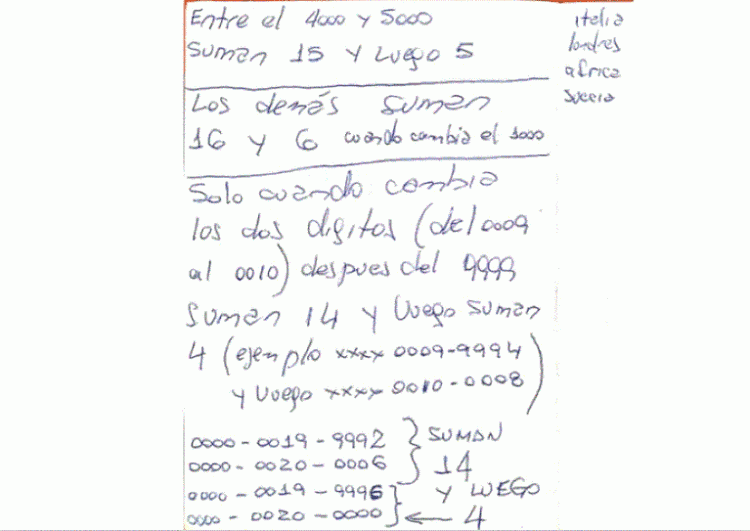 Entre el 4000 y 5000
Suman 15 y Luego 5
Los demás suman
16 y 6 cuando cambia el 1000
Solo cuando cambia
los dos digitos (del 0009
al 0010) despues del 9999
Suman 14 y luego suman
4 (ejemplo xxxx 0009-9994
y luego xxxx 0010-0008)
0000-0019-9992 } SUMAN
0000-0020-0006 14
0000-0019-9996 } Y LUEGO
0000-0020-0000 ← 4
italia
londres
africa
suecia